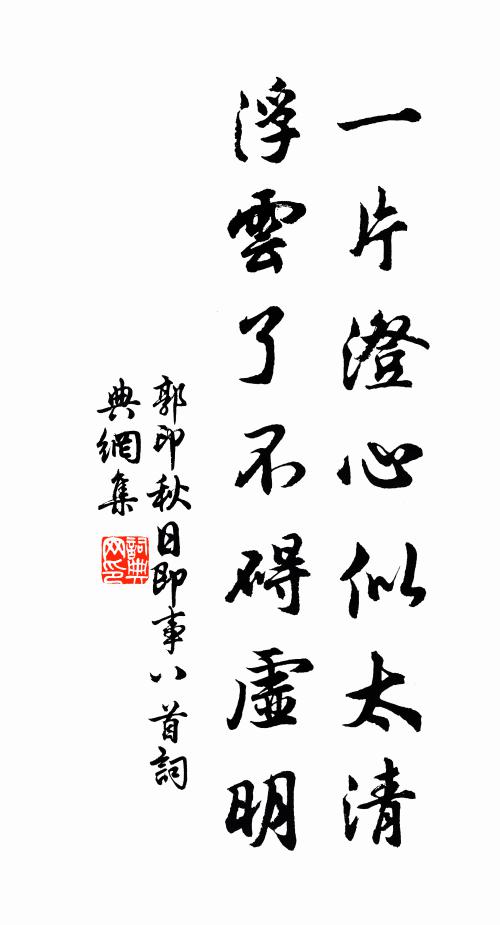 一片澄心似太清
浮雲了不碍虛明
郭印秋日即事八首詞
典網集
詞典網印